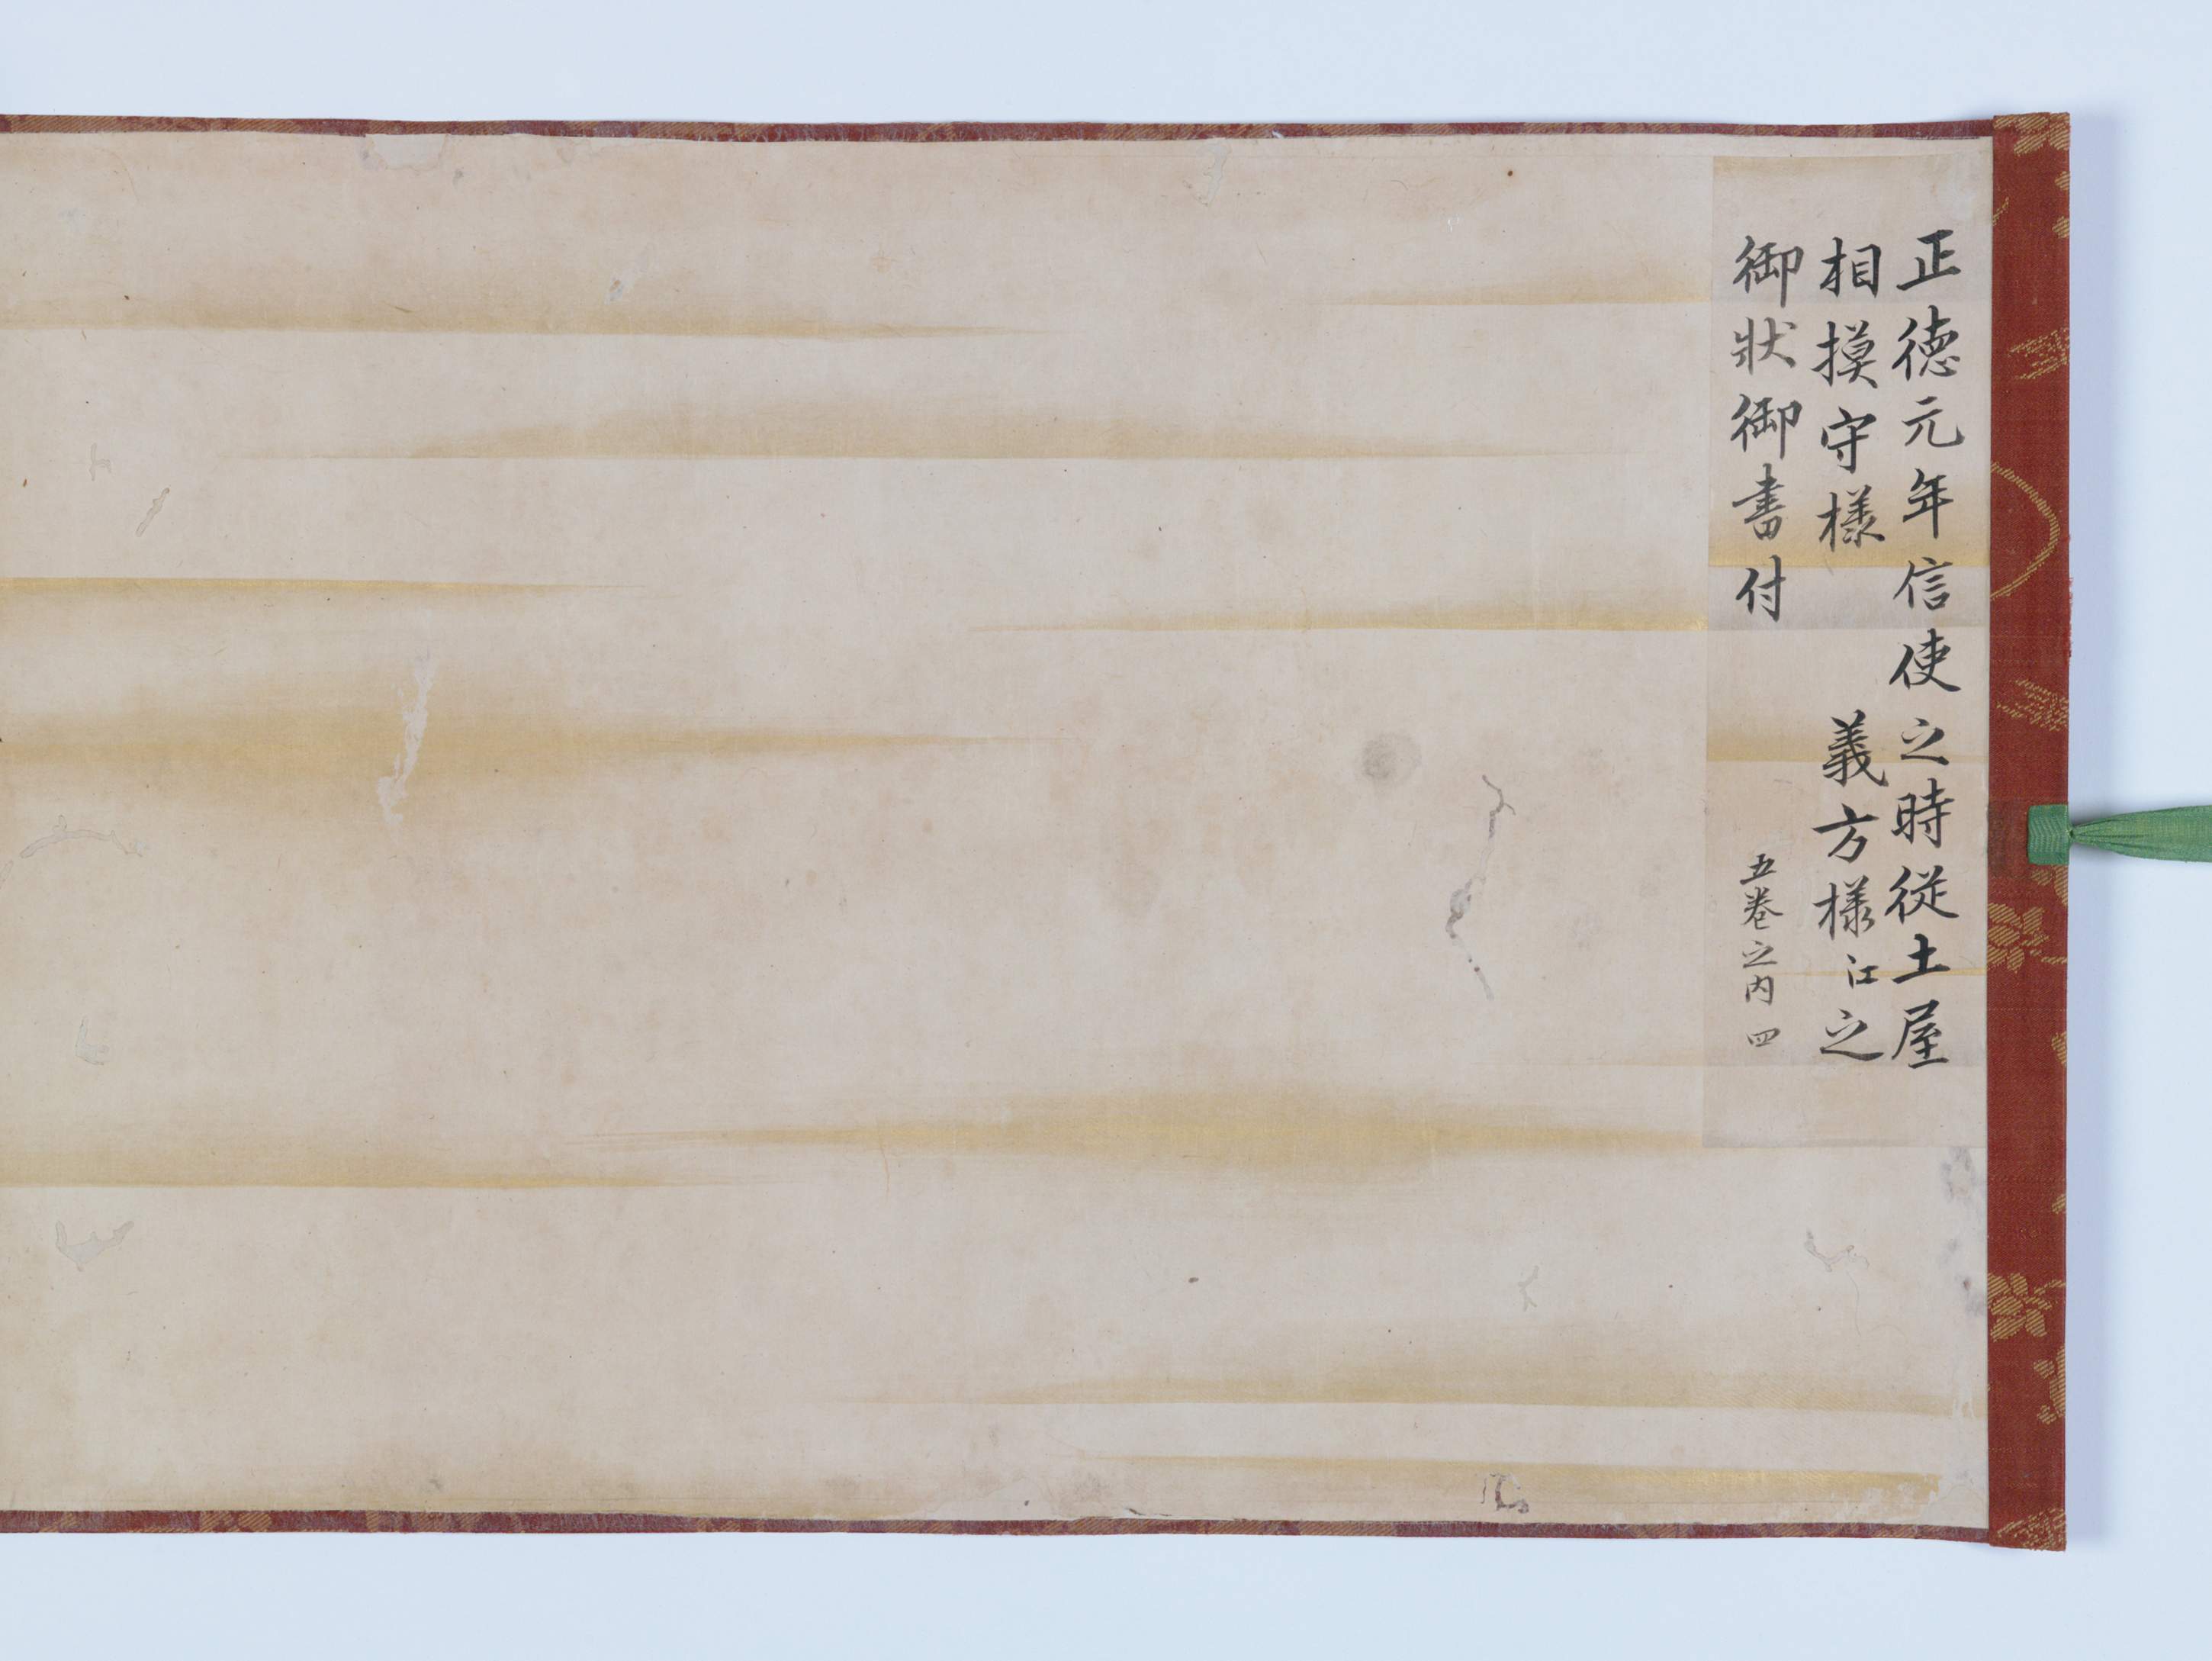 正徳元年信使之時従土屋
相摸守様　義方様江之
御狀御書付
五卷之内　四